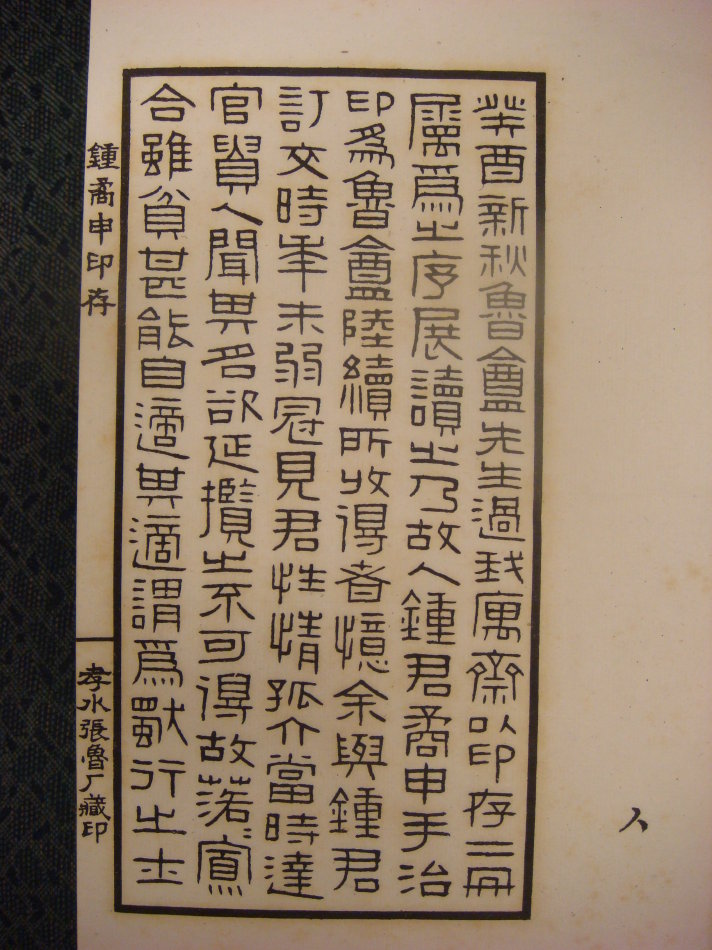 癸酉新秋魯盦先生過我寓齋以印存二冊
屬爲之序展讀之乃故人鍾君矞申手治
印爲魯盦陸續所收得者憶余與鍾君
訂交時年未弱冠見君性情孤介當時達
官貴人聞其名欲延攬之不可得故落〻寡
合雖貧甚能自適其適謂爲獨行之士
鍾矞申印存
孝水張魯厂藏印